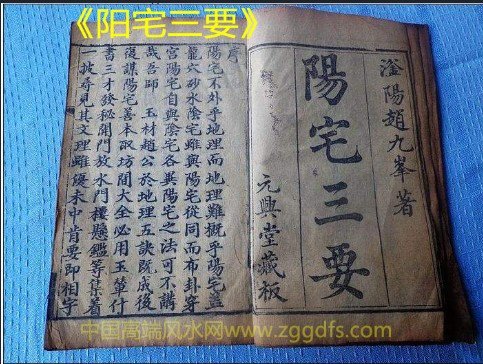 《阳宅三要》
滏陽趙九峯著
陽宅三要
元興堂藏板
序
陽宅不外乎地理而地理難概乎陽宅蓋
龍穴砂水陰宅雖與陽宅從同而布卦穿
宮陽宅自與陰宅各異陽宅之法可不講
哉吾師 玉材趙公於地理五訣既成後
復謀陽宅善本取坊間大全必用玉
書三才發秘開門放水門樓懸鑑等集著
一披尋見其文理雖優未中肯要即相字
中国高端风水网www.zggdfs.com